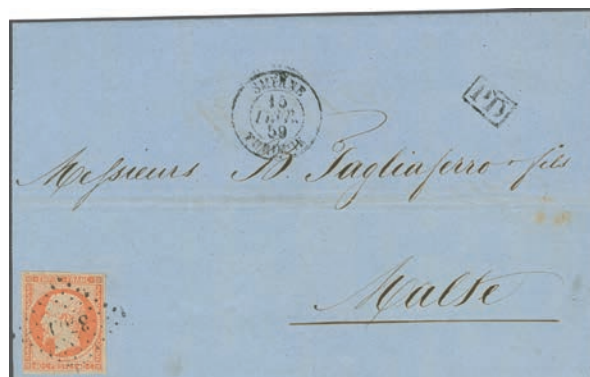 SMYRNE
15
FEVR.
59
TURQUIE
PD
Messieurs B. Tagliaferro & fils
Malte